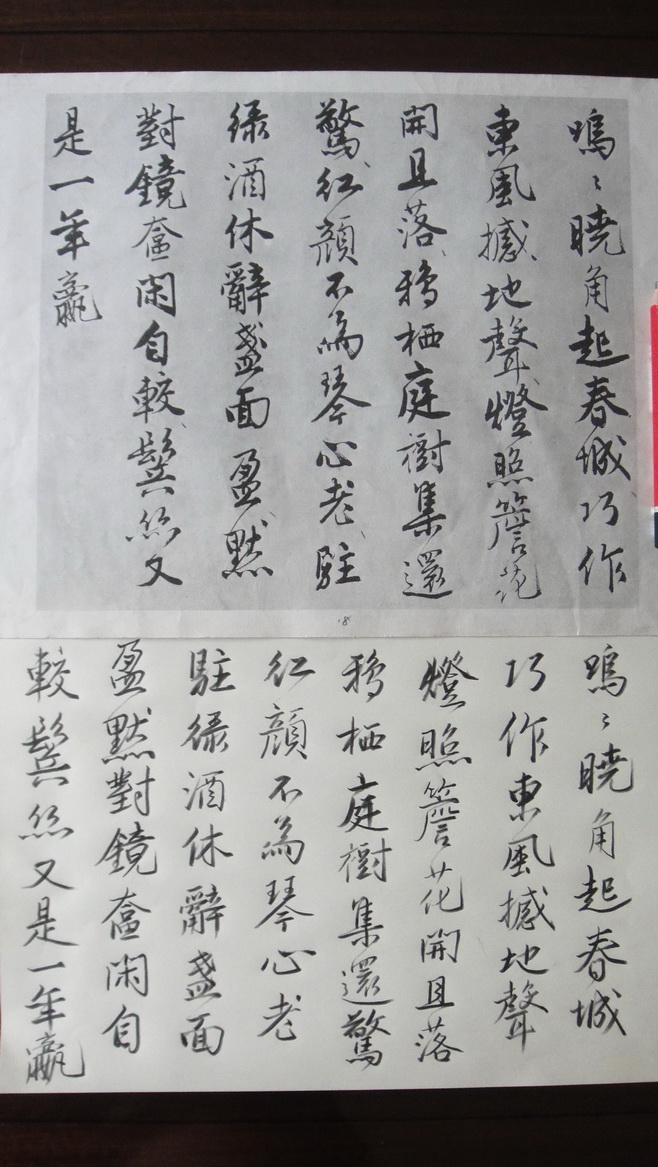 嗚〻曉角起春城巧作
東風撼地聲燈照簷花
開且落鴉栖庭樹集還
驚紅顏不為琴心老駐
綠酒休辭盞面盈默
對鏡奩閑自較鬢絲又
是一年贏
嗚〻曉角起春城
巧作東風撼地聲
燈照簷花開且落
鴉栖庭樹集還驚
紅顏不為琴心老
駐綠酒休辭盞面
盈默對鏡奩閑自
較鬢絲又是一年贏